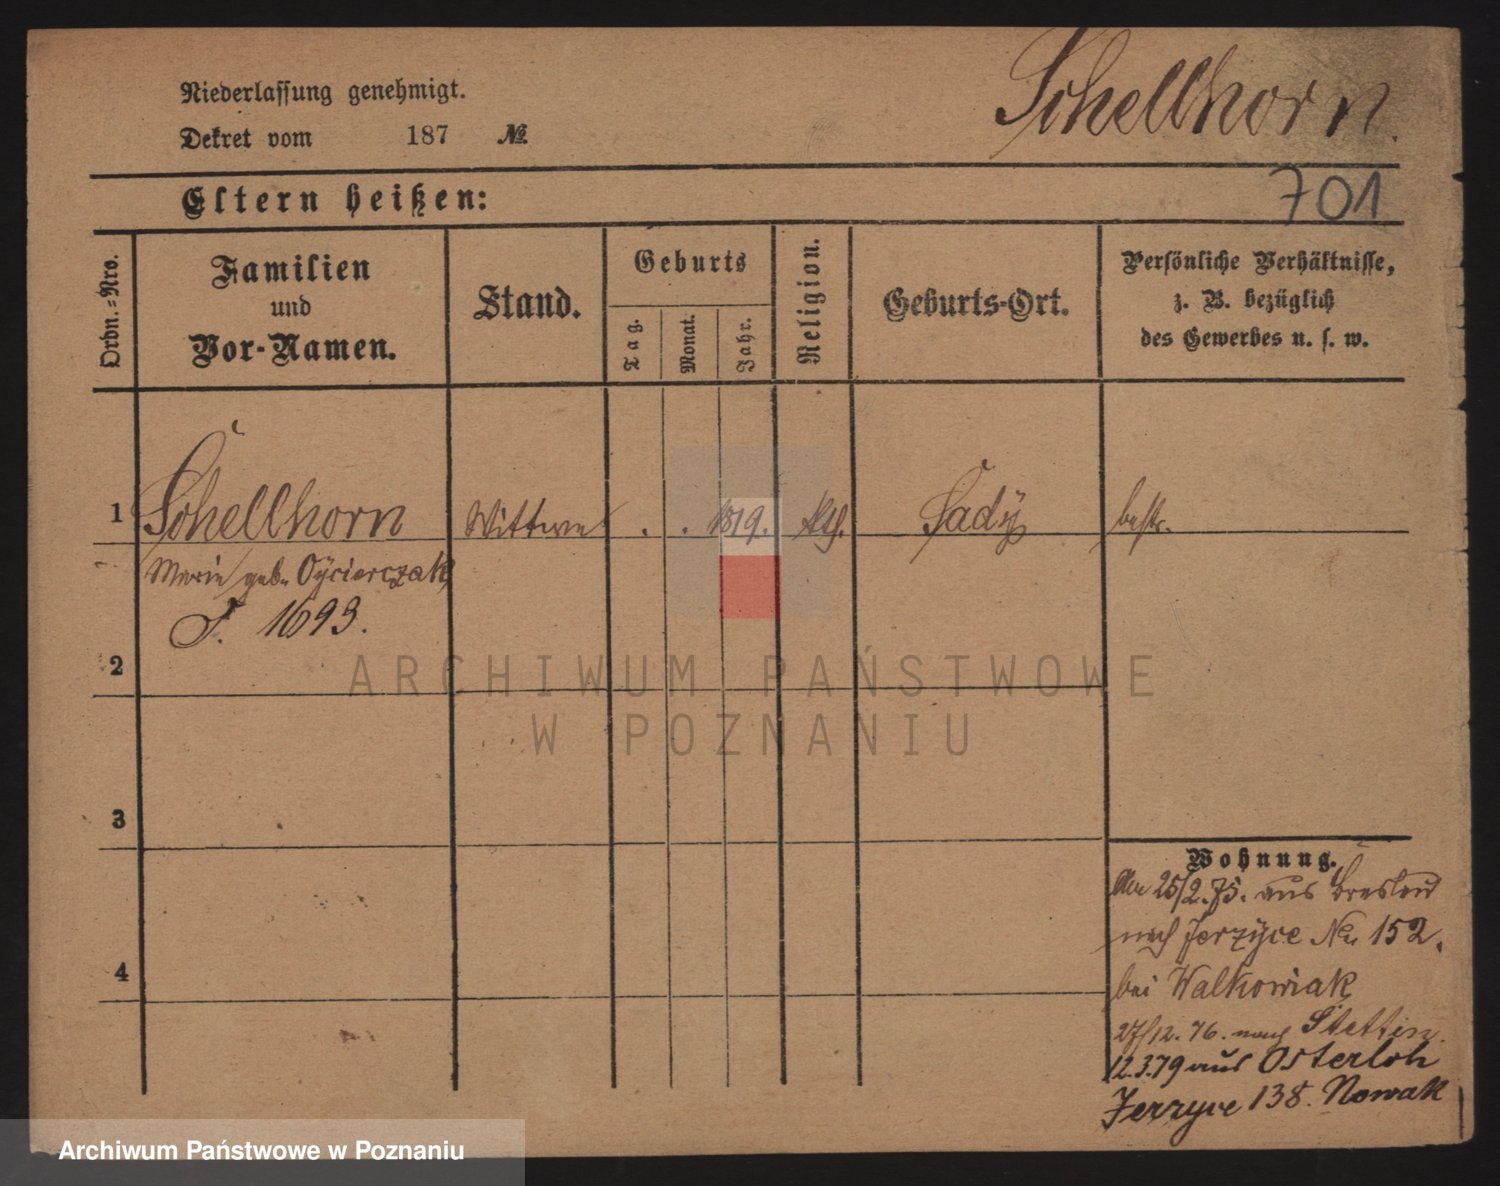 Schellhorn.
Niederlassung genehmigt.
Dekret vom 187 №
701
Eltern heißen:
Ordn.-Nro.
Familien
und
Vor-Namen.
Stand.
Geburts
Tag.
Monat.
Jahr.
Religion.
Geburts-Ort.
Persönliche Verhältnisse,
z. B. bezüglich
des Gewerbes u. s. w.
1 Schellhorn Wittwe . . 1819. kth. Sady
Marie geb. Oycierczak
J. 1693.
2
3
4
Wohnung.
25/2.75. aus Breslau
nach Jerzyce No 152.
bei Walkowiak
27/12.76. nach Stettin.
12.3.79 aus Osterloh
Jerzyce 138. Nowak
ARCHIWUM PAŃSTWOWE
W POZNANIU
Archiwum Państwowe w Poznaniu